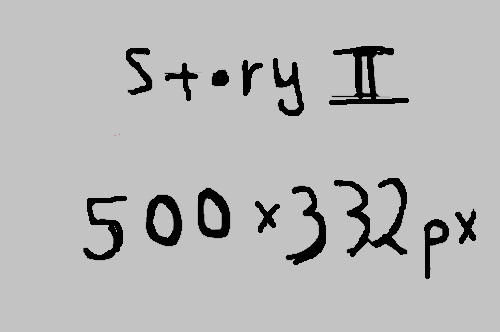 Story II
500x332px